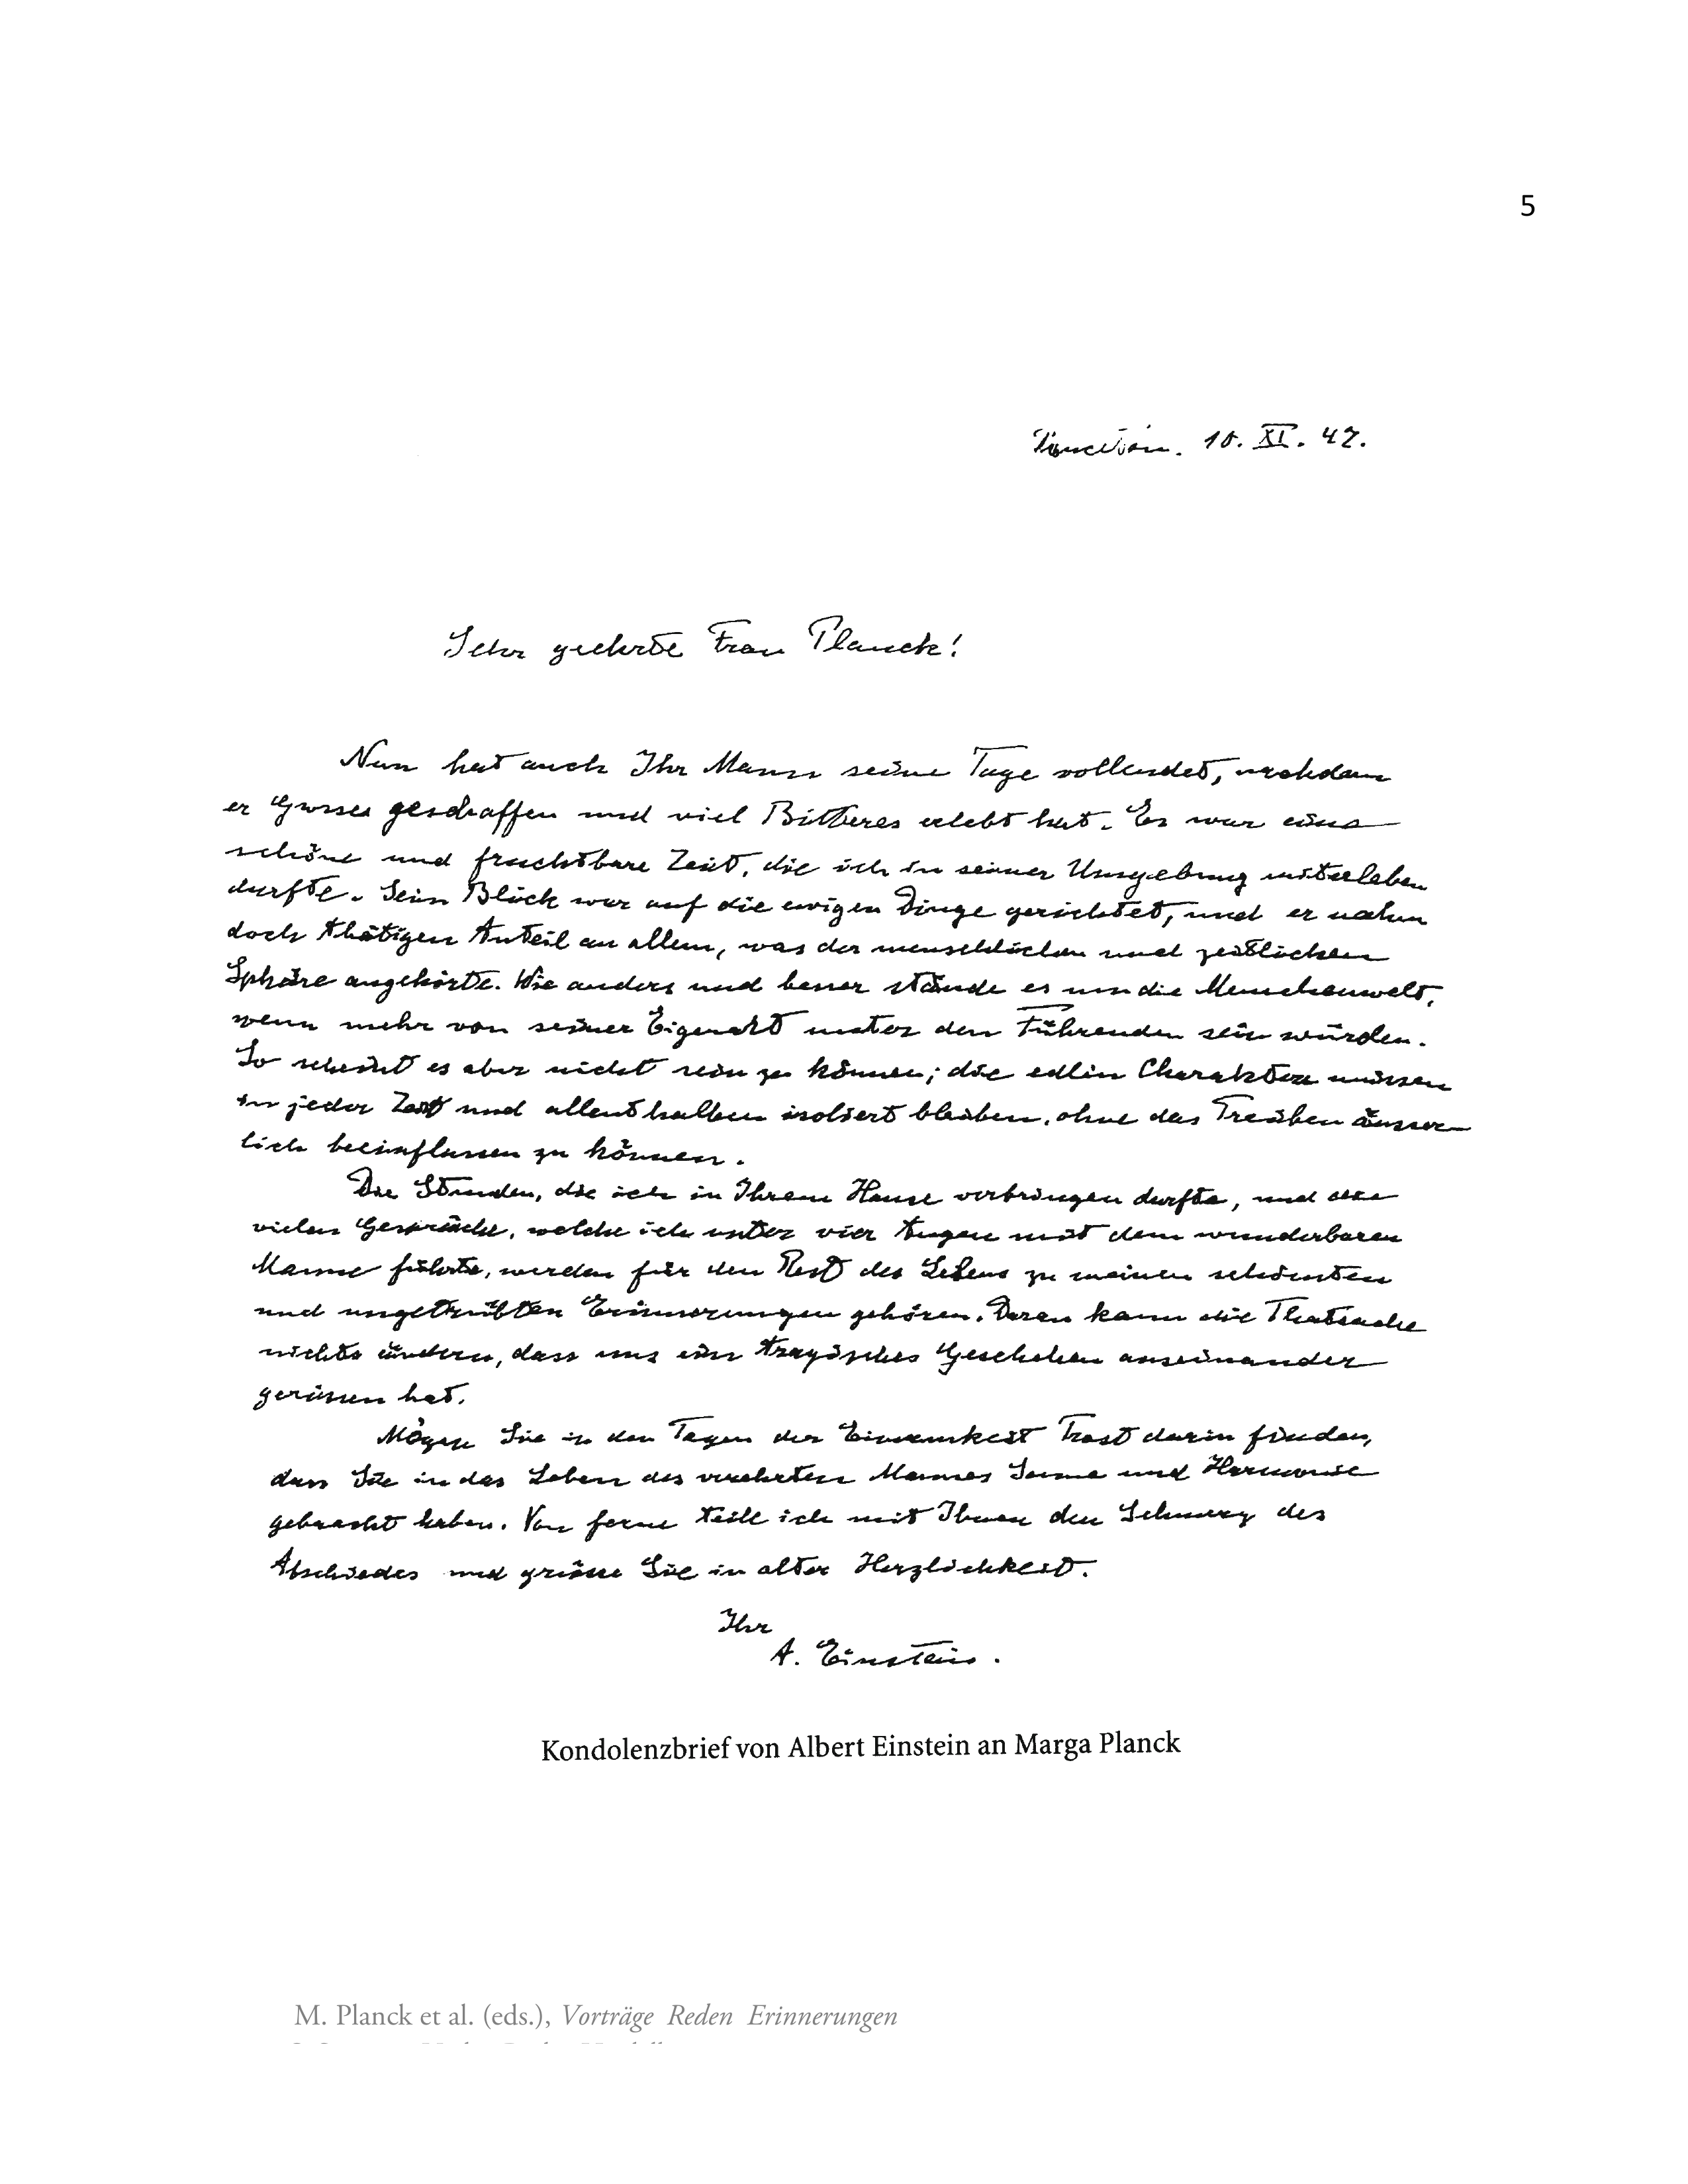 5
Princeton. 10. XI. 47.
Sehr geehrte Frau Planck!
Nun hat auch Ihr Mann seine Tage vollendet, nachdem
er Grosses geschaffen und viel Bitteres erlebt hat. Es war eine
schöne und fruchtbare Zeit, die ich in seiner Umgebung miterleben
durfte. Sein Blick war auf die ewigen Dinge gerichtet, und er nahm
doch thätigen Anteil an allem, was der menschlichen und zeitlichen
Sphäre angehörte. Wie anders und besser stände es um die Menschenwelt,
wenn mehr von seiner Eigenart unter den Führenden sein würden.
So scheint es aber nicht sein zu können; die edlen Charaktere müssen
in jeder Zeit und allenthalben isoliert bleiben, ohne das Treiben äusser-
lich beeinflussen zu können.
Die Stunden, die ich in Ihrem Hause verbringen durfte, und die
vielen Gespräche, welche ich unter vier Augen mit dem wunderbaren
Manne führte, werden für den Rest des Lebens zu meinen schönsten
und ungetrübten Erinnerungen gehören. Daran kann die Thatsache
nichts ändern, dass uns ein tragisches Geschehen auseinander
gerissen hat.
Mögen Sie in den Tagen der Einsamkeit Trost darin finden,
dass Sie in das Leben des verehrten Mannes Sonne und Harmonie
gebracht haben. Von ferne teile ich mit Ihnen den Schmerz des
Abschiedes und grüsse Sie in alter Herzlichkeit.
Ihr
A. Einstein.
Kondolenzbrief von Albert Einstein an Marga Planck
M. Planck et al. (eds.), Vorträge Reden Erinnerungen